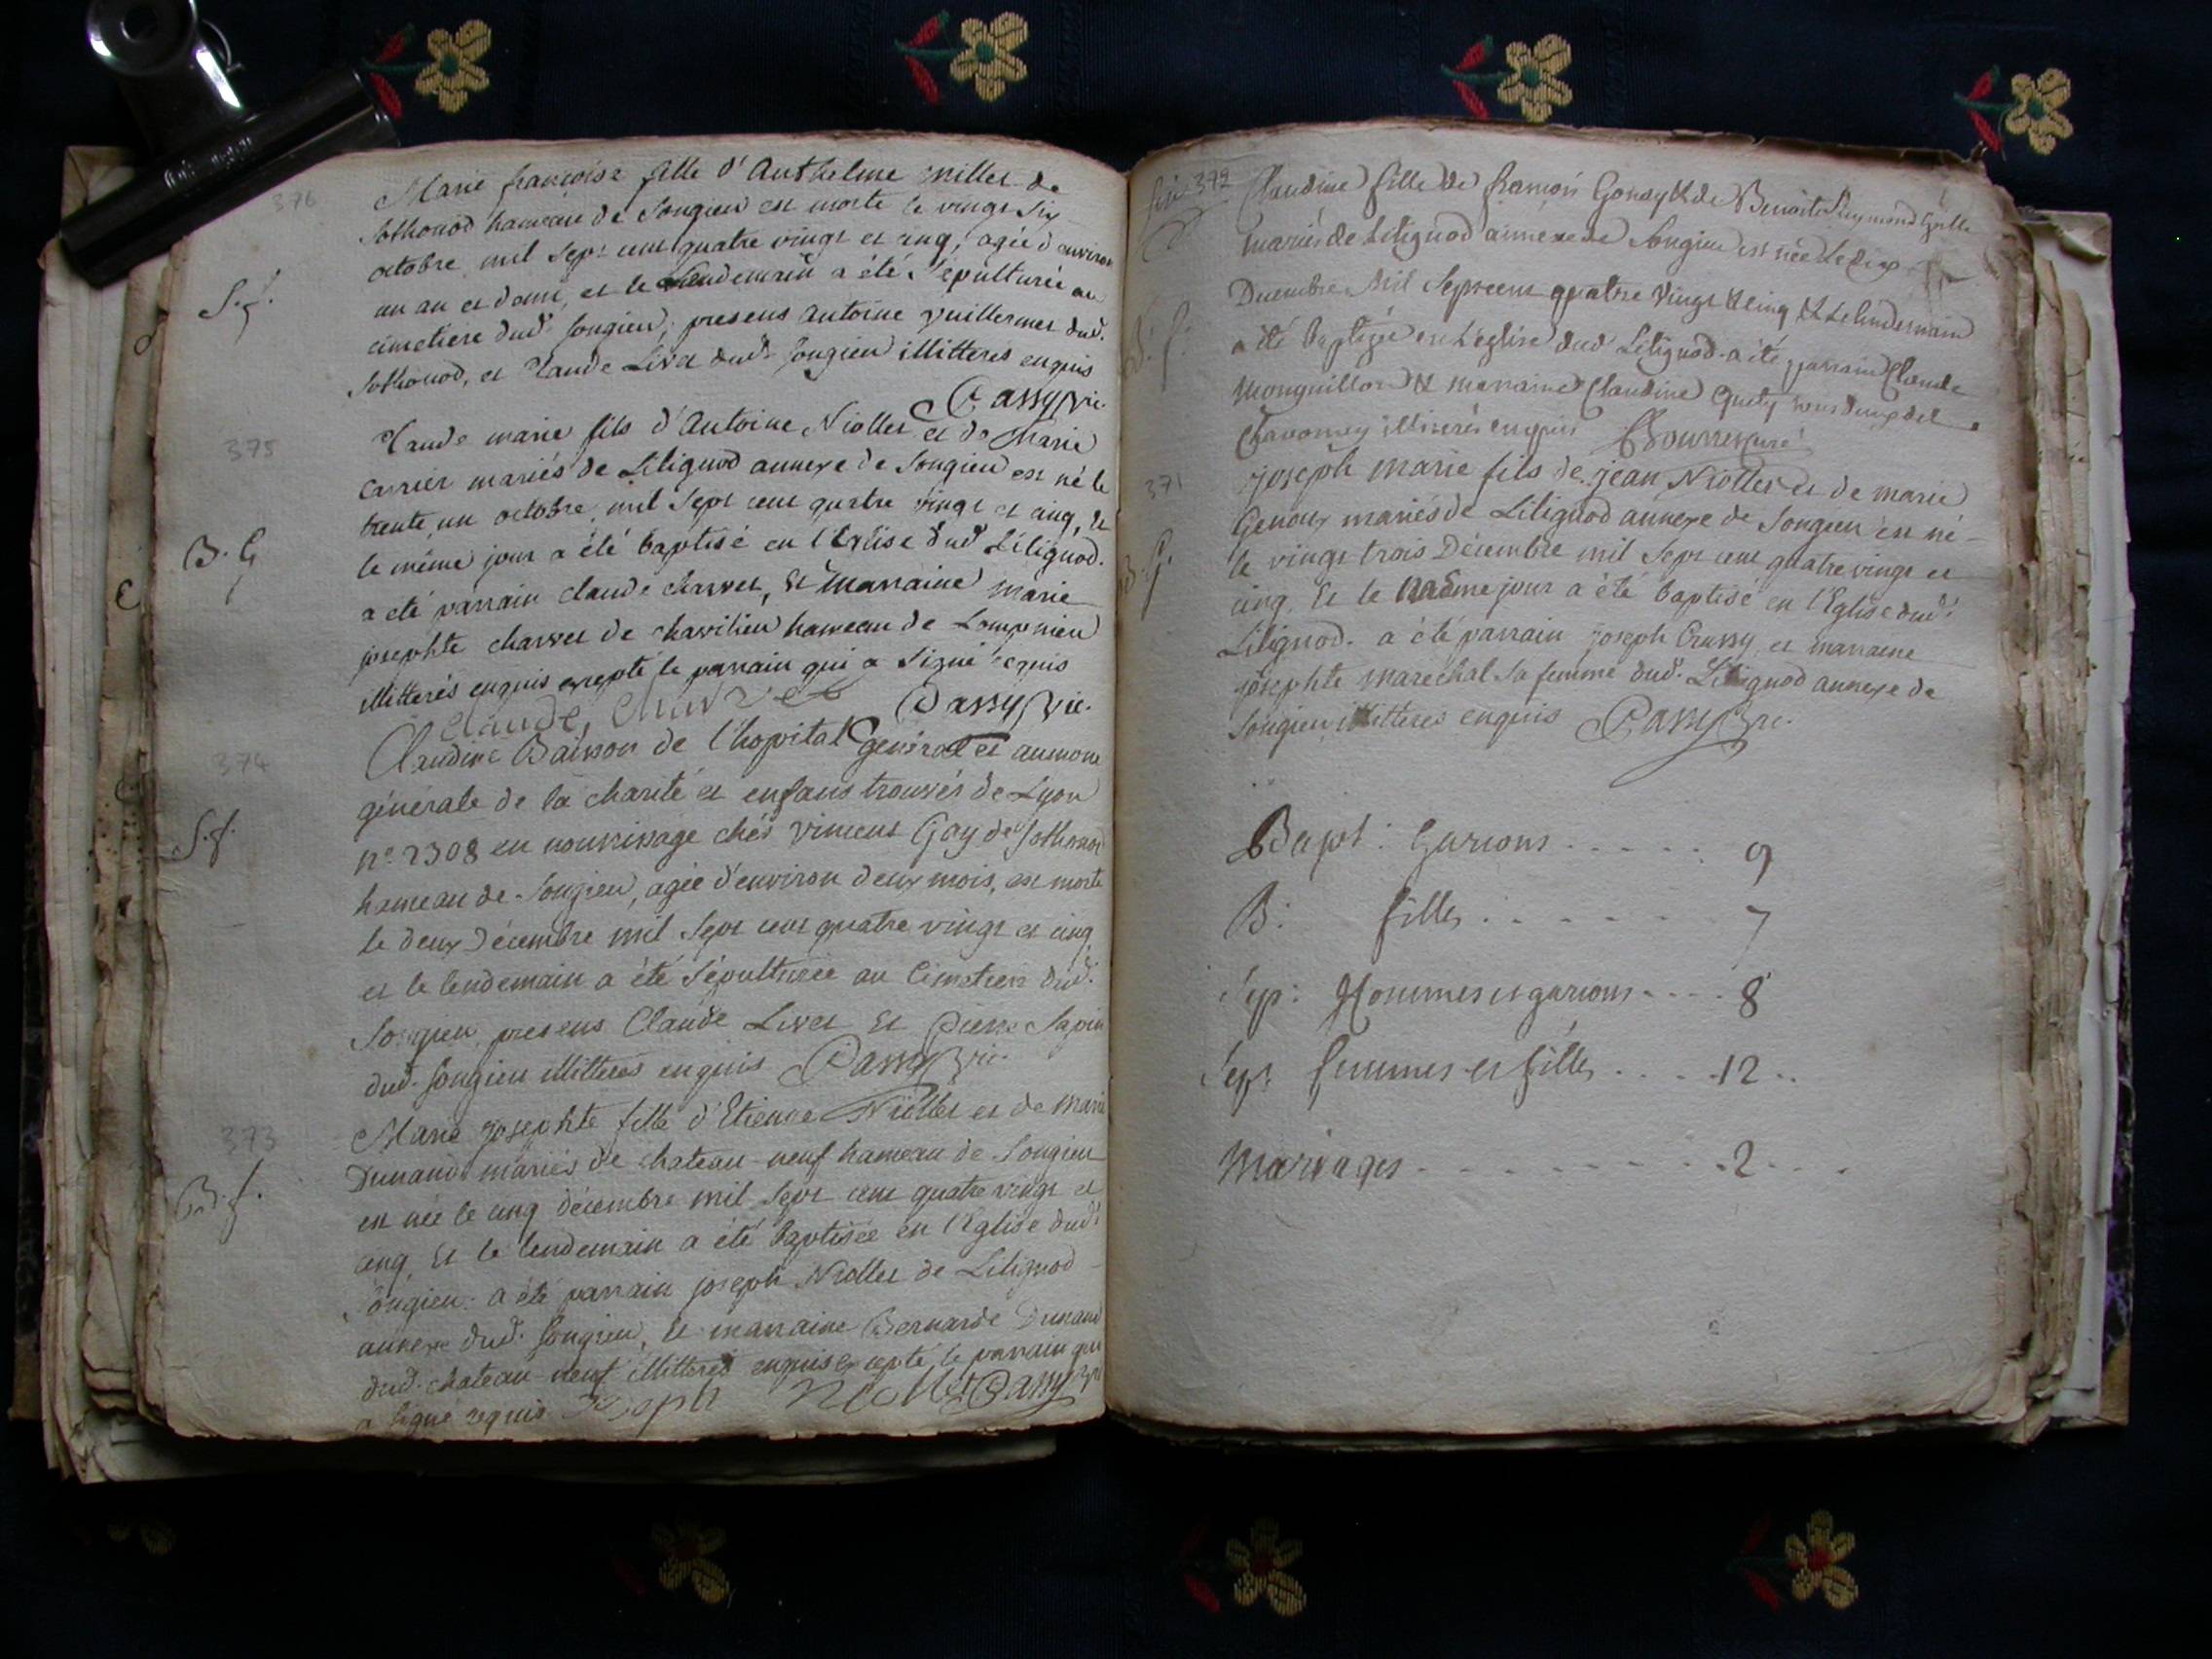 376
Marie françoise fille d'Anthelme millet de
Sothonod hameau de Songieu est morte le vingt Six
octobre mil Sept cent quatre vingt et cinq, agée d'environ
un an et demi, et le lendemain a été Sépulturée au
S. f.
cimetiere dud. Songieu; presens Antoine vuillermet dud.
Sothonod, et Claude Livet dud. Songieu illitterés enquis
Passy vic.
375
Claude marie fils d'Antoine Niollet et de Marie
Carrier mariés de Lilignod annexe de Songieu est né le
trente un octobre mil Sept cent quatre vingt et cinq, et
B. G
le même jour a été baptisé en l'Eglise dud. Lilignod.
a été parrain claude charvet, Et marraine marie
josephte charvet de chavilieu hameau de Lompnieu
illitterés enquis excepté le parrain qui a Signé requis
Claude, Charvet Passy vic.
374
Claudine de l'hopital général et aumone
générale de la charité et enfans trouvés de Lyon
S. f.
n° 2308 en nourrissage chés vincent Gay de Sothonod
hameau de Songieu, agée d'environ deux mois, est morte
le deux Décembre mil Sept cent quatre vingt et cinq
et le lendemain a été Sépulturée au Cimetiere dud.
Songieu, presens Claude Livet Et Pierre Sapin
dud. Songieu illitterés enquis Passy vic.
373
Marie josephte fille d'Etienne Niollet et de Marie
Dunand mariés de chateau-neuf hameau de Songieu
B. f.
est née le cinq décembre mil Sept cent quatre vingt et
cinq, Et le lendemain a été baptisée en l'Eglise dud.
Songieu. a été parrain joseph Niollet de Lilignod
annexe dud. Songieu, Et marraine Bernarde Dunand
dud. chateau-neuf illitterés enquis excepté le parrain qui
a Signé requis Joseph Niollet Passy vic
372
Claudine fille de françois Gonay & de Benoite
mariés de Lilignod annexe de Songieu est née Le dix
Decembre Mil Sept cent quatre Vingt & cinq & Le lendemain
B. f.
a été baptizée en L'eglise dud. Lilignod. a été parrain Claude
Monguillon & marraine Claudine tous deux de
Chavornay illiterés enquis curé
371
joseph marie fils de jean Niollet et de marie
Genoux mariés de Lilignod annexe de Songieu est né
B. G.
le vingt trois Décembre mil Sept cent quatre vingt et
cinq, Et le même jour a été baptisé en l'Eglise dud.
Lilignod. a été parrain joseph Crussy, et marraine
josephte maréchal Sa femme dud. Lilignod annexe de
Songieu, illitterés enquis Passy vic.
Bapt: Garçons ..... 9
B: filles ...... 7
Sep: Hommes et garçons .... 8
Sep: femmes et filles .... 12 ..
Mariages ........ 2 ...